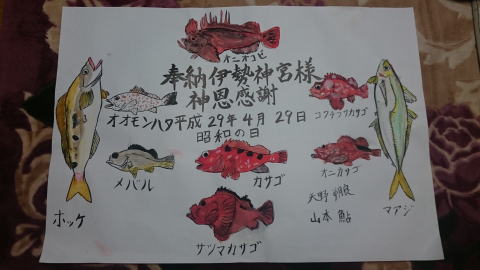 オニオコゼ
奉納伊勢神宮様
神恩感謝
オオモンハタ
平成29年4月29日
昭和の日
コクチフサカサゴ
メバル
カサゴ
オニカサゴ
ホッケ
サツマカサゴ
マアジ
山本 鮎